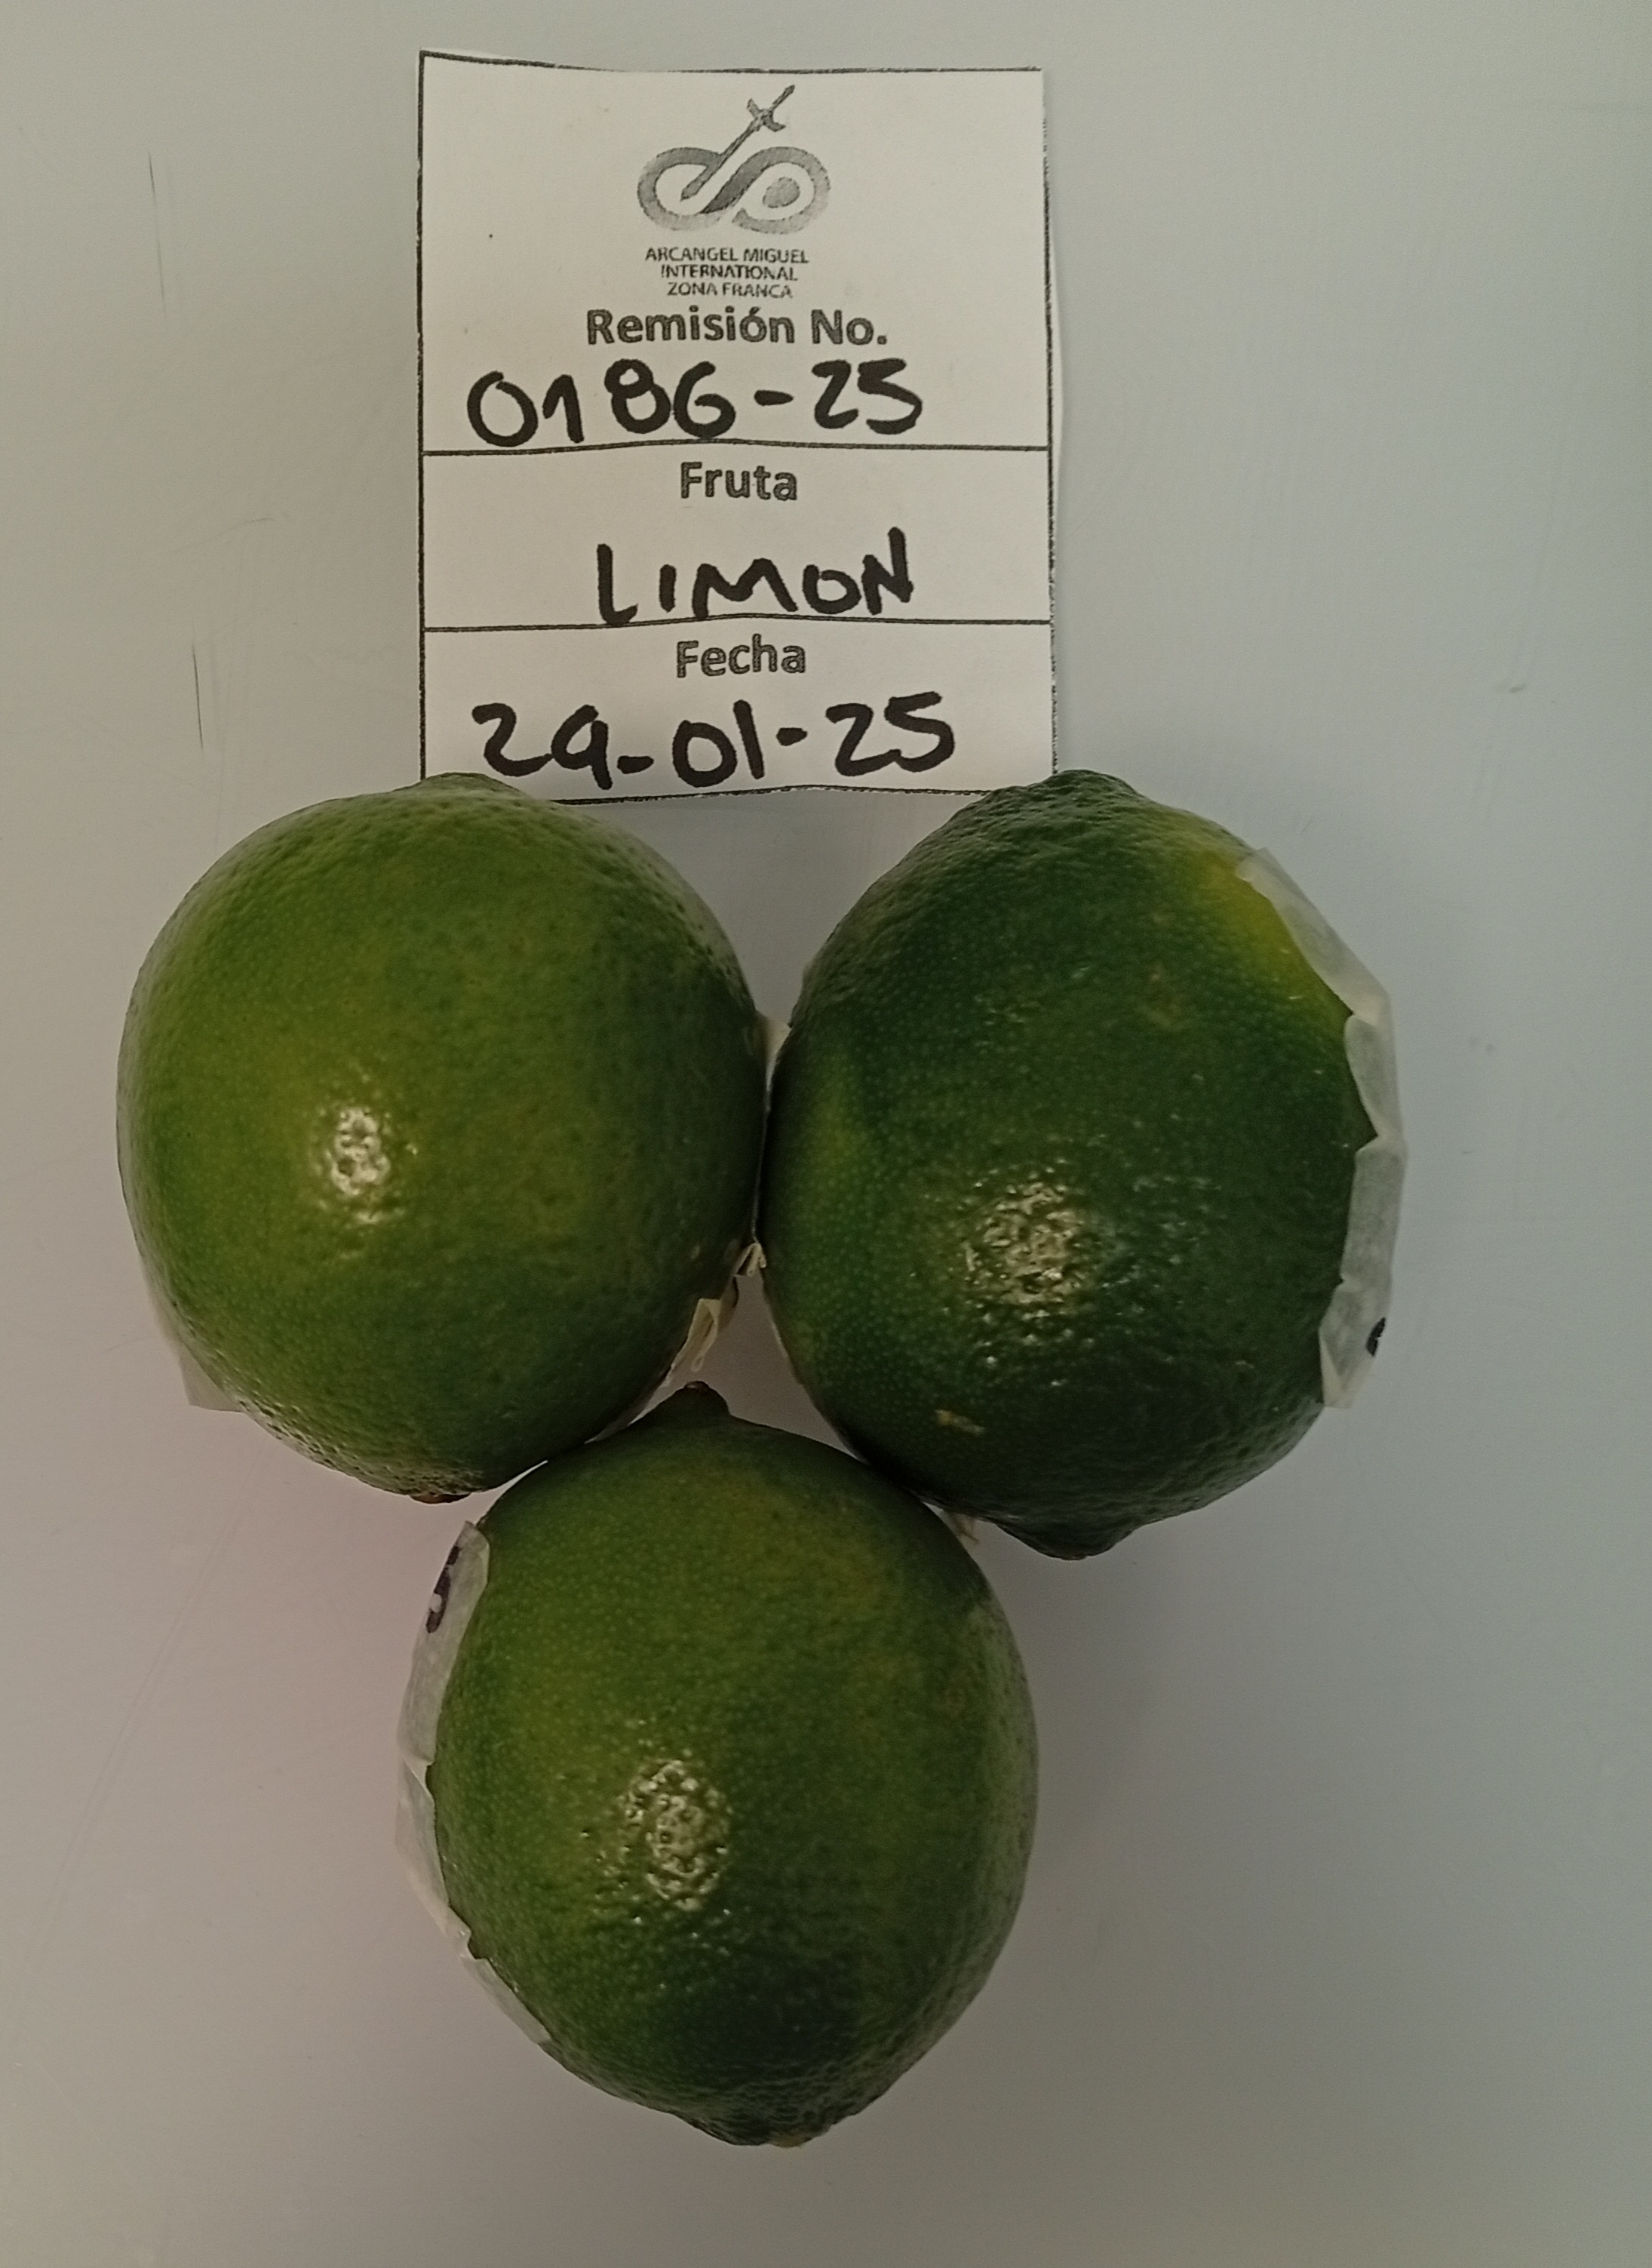 ARCANGEL MIGUEL
INTERNATIONAL
ZONA FRANCA
Remisión No.
0186-25
Fruta
LIMON
Fecha
29-01-25